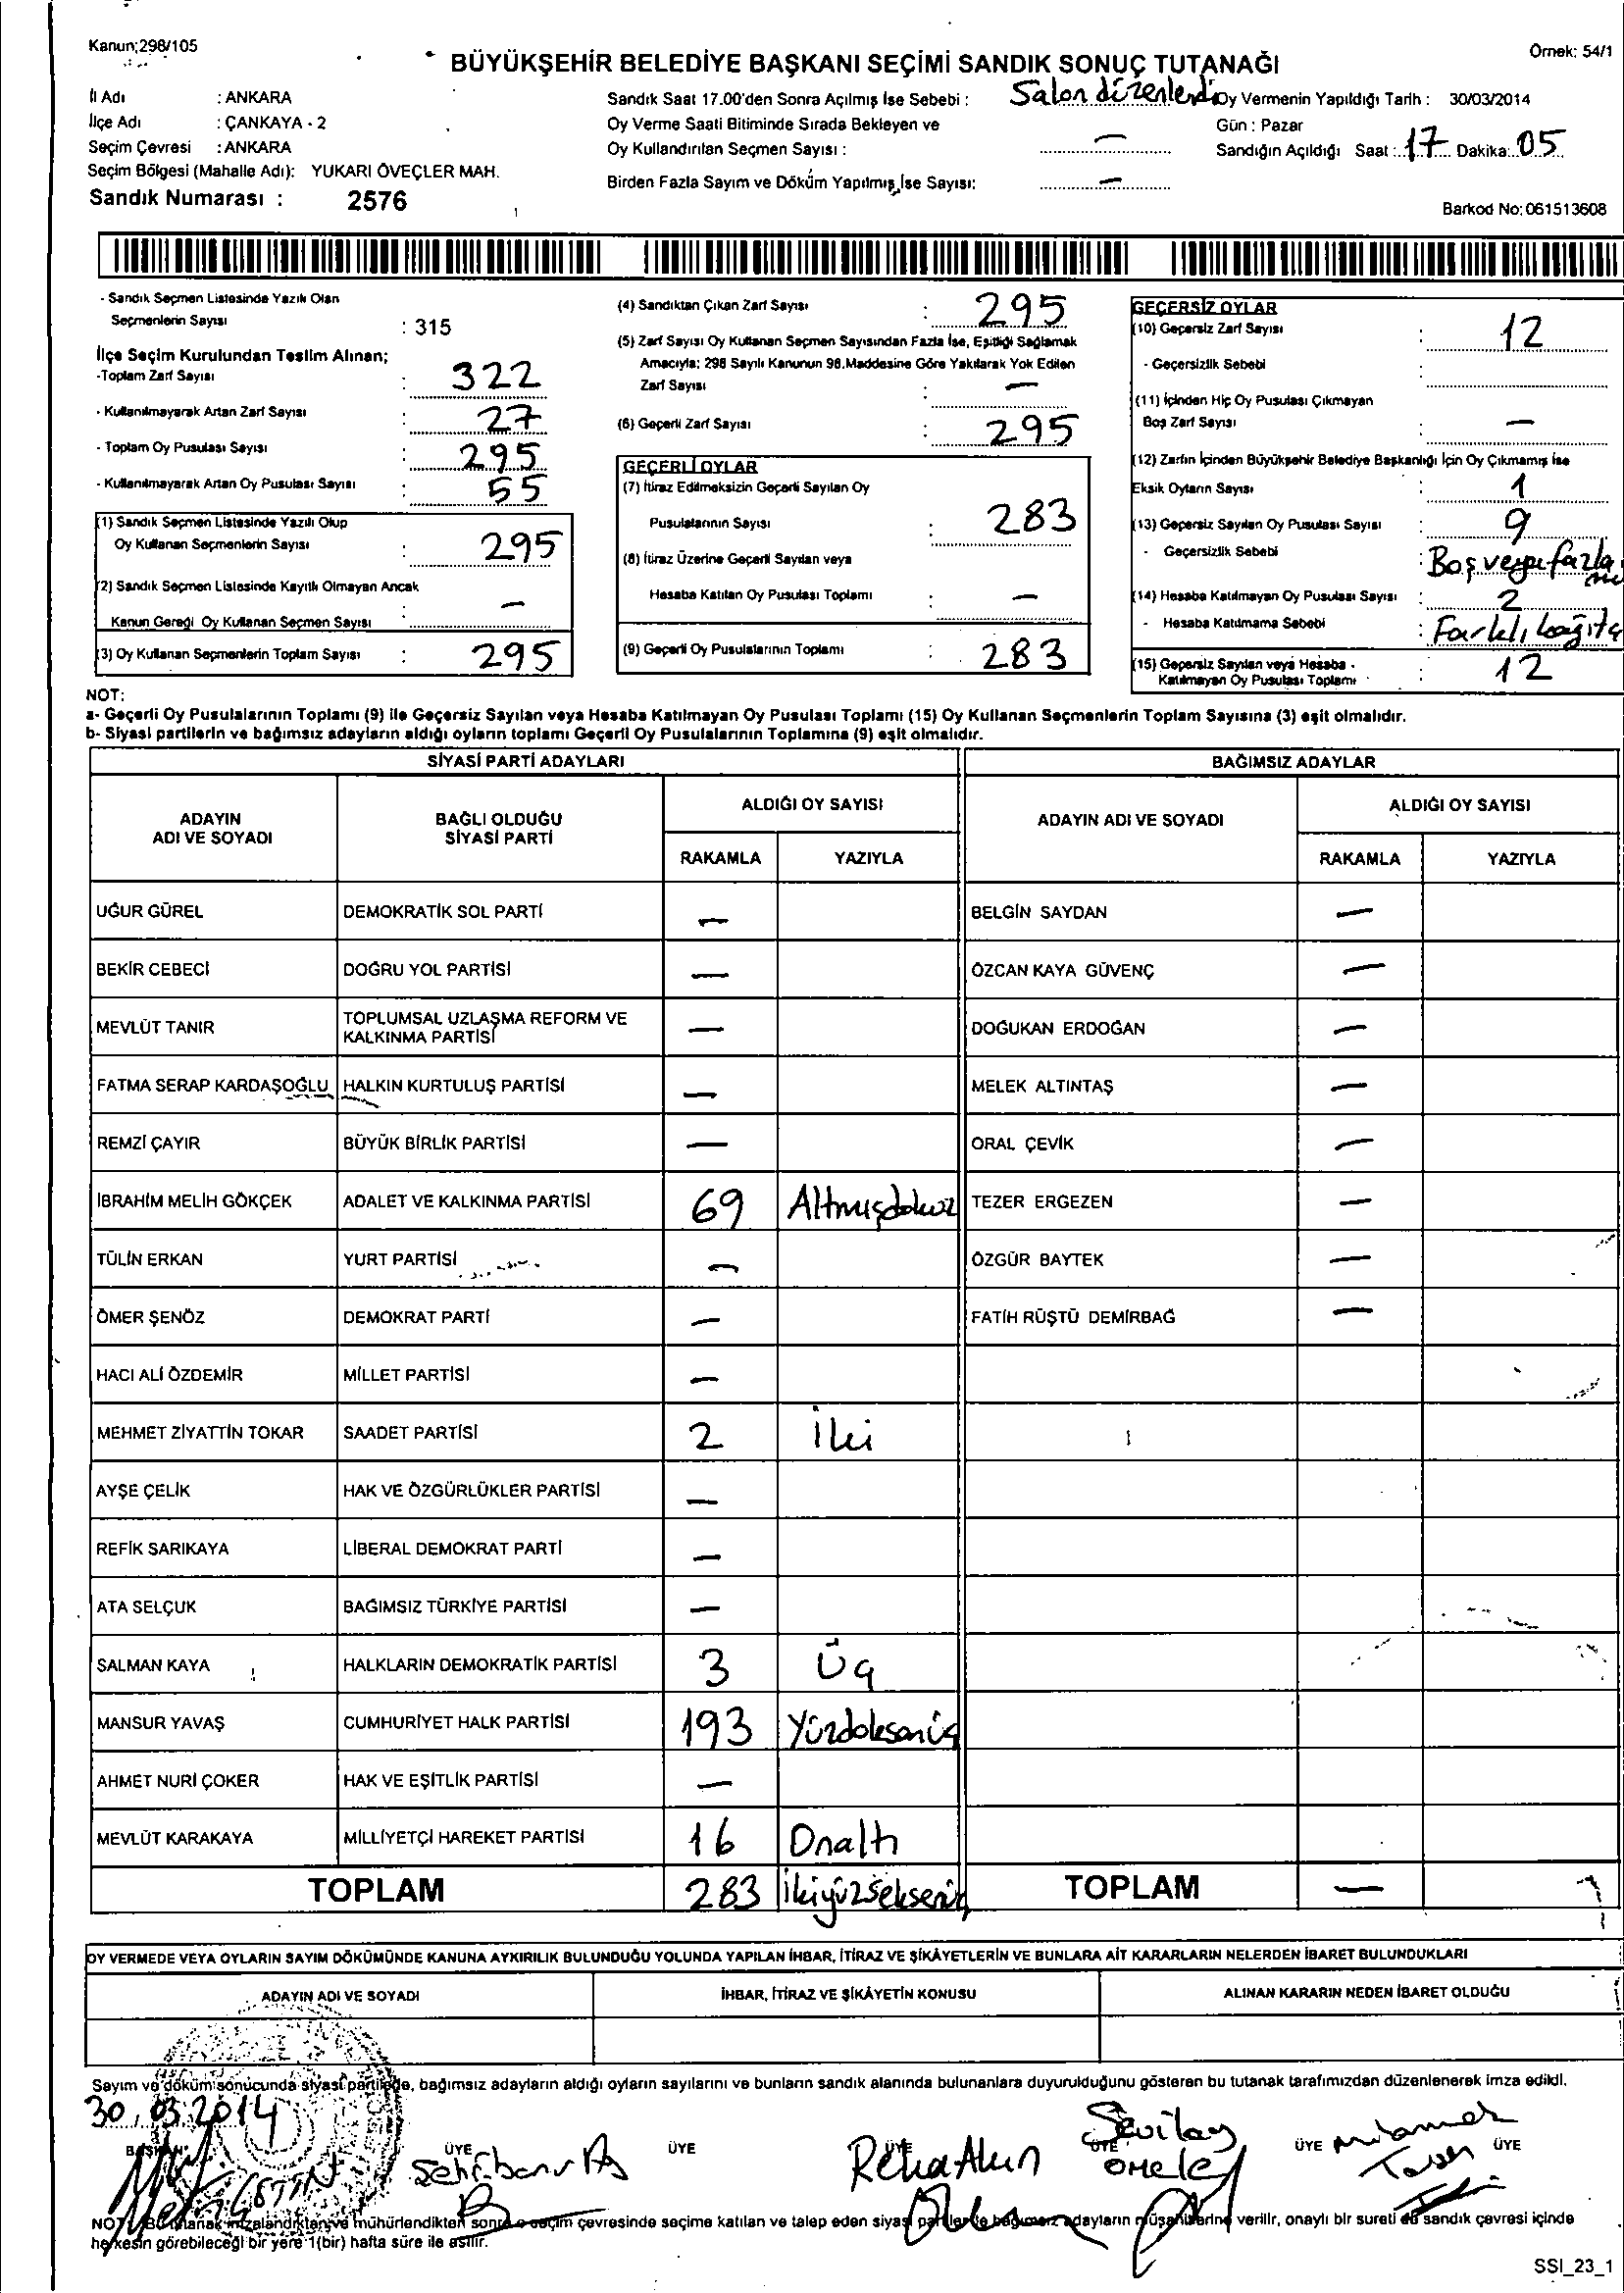 Kanun;298/105
Örnek: 54/1
BÜYÜKŞEHİR BELEDİYE BAŞKANI SEÇİMİ SANDIK SONUÇ TUTANAĞI
İl Adı : ANKARA
İlçe Adı : ÇANKAYA - 2
Seçim Çevresi : ANKARA
Seçim Bölgesi (Mahalle Adı): YUKARI ÖVEÇLER MAH.
Sandık Numarası : 2576
Sandık Saat 17.00'den Sonra Açılmış İse Sebebi : Salon düzenlendi
Oy Verme Saati Bitiminde Sırada Bekleyen ve
Oy Kullandırılan Seçmen Sayısı : —
Birden Fazla Sayım ve Döküm Yapılmış İse Sayısı: —
Oy Vermenin Yapıldığı Tarih : 30/03/2014
Gün : Pazar
Sandığın Açıldığı Saat : 17 Dakika: 05
Barkod No: 061513608
- Sandık Seçmen Listesinde Yazılı Olan
Seçmenlerin Sayısı : 315
İlçe Seçim Kurulundan Teslim Alınan;
-Toplam Zarf Sayısı : 322
- Kullanılmayarak Artan Zarf Sayısı : 27
- Toplam Oy Pusulası Sayısı : 295
- Kullanılmayarak Artan Oy Pusulası Sayısı : 55
(1) Sandık Seçmen Listesinde Yazılı Olup
Oy Kullanan Seçmenlerin Sayısı : 295
(2) Sandık Seçmen Listesinde Kayıtlı Olmayan Ancak
Kanun Gereği Oy Kullanan Seçmen Sayısı : —
(3) Oy Kullanan Seçmenlerin Toplam Sayısı : 295
(4) Sandıktan Çıkan Zarf Sayısı : 295
(5) Zarf Sayısı Oy Kullanan Seçmen Sayısından Fazla İse, Eşitliği Sağlamak
Amacıyla; 298 Sayılı Kanunun 98.Maddesine Göre Yakılarak Yok Edilen
Zarf Sayısı : —
(6) Geçerli Zarf Sayısı : 295
GEÇERLİ OYLAR
(7) İtiraz Edilmeksizin Geçerli Sayılan Oy
Pusulalarının Sayısı : 283
(8) İtiraz Üzerine Geçerli Sayılan veya
Hesaba Katılan Oy Pusulası Toplamı : —
(9) Geçerli Oy Pusulalarının Toplamı : 283
GEÇERSİZ OYLAR
(10) Geçersiz Zarf Sayısı : 12
- Geçersizlik Sebebi :
(11) İçinden Hiç Oy Pusulası Çıkmayan
Boş Zarf Sayısı : —
(12) Zarfın İçinden Büyükşehir Belediye Başkanlığı İçin Oy Çıkmamış İse
Eksik Oyların Sayısı : 1
(13) Geçersiz Sayılan Oy Pusulası Sayısı : 9
- Geçersizlik Sebebi : Boş veya fazla
(14) Hesaba Katılmayan Oy Pusulası Sayısı : 2
- Hesaba Katılmama Sebebi : Farklı kağıta
(15) Geçersiz Sayılan veya Hesaba -
Katılmayan Oy Pusulası Toplamı : 12
NOT:
a- Geçerli Oy Pusulalarının Toplamı (9) ile Geçersiz Sayılan veya Hesaba Katılmayan Oy Pusulası Toplamı (15) Oy Kullanan Seçmenlerin Toplam Sayısına (3) eşit olmalıdır.
b- Siyasi partilerin ve bağımsız adayların aldığı oyların toplamı Geçerli Oy Pusulalarının Toplamına (9) eşit olmalıdır.
SİYASİ PARTİ ADAYLARI BAĞIMSIZ ADAYLAR
ADAYIN ADI VE SOYADI BAĞLI OLDUĞU SİYASİ PARTİ ALDIĞI OY SAYISI ADAYIN ADI VE SOYADI ALDIĞI OY SAYISI
RAKAMLA YAZIYLA RAKAMLA YAZIYLA
UĞUR GÜREL DEMOKRATİK SOL PARTİ — BELGİN SAYDAN —
BEKİR CEBECİ DOĞRU YOL PARTİSİ — ÖZCAN KAYA GÜVENÇ —
MEVLÜT TANIR TOPLUMSAL UZLAŞMA REFORM VE KALKINMA PARTİSİ — DOĞUKAN ERDOĞAN —
FATMA SERAP KARDAŞOĞLU HALKIN KURTULUŞ PARTİSİ — MELEK ALTINTAŞ —
REMZİ ÇAYIR BÜYÜK BİRLİK PARTİSİ — ORAL ÇEVİK —
İBRAHİM MELİH GÖKÇEK ADALET VE KALKINMA PARTİSİ 69 Altmışdokuz TEZER ERGEZEN —
TÜLİN ERKAN YURT PARTİSİ — ÖZGÜR BAYTEK —
ÖMER ŞENÖZ DEMOKRAT PARTİ — FATİH RÜŞTÜ DEMİRBAĞ —
HACI ALİ ÖZDEMİR MİLLET PARTİSİ —
MEHMET ZİYATTİN TOKAR SAADET PARTİSİ 2 İki
AYŞE ÇELİK HAK VE ÖZGÜRLÜKLER PARTİSİ —
REFİK SARIKAYA LİBERAL DEMOKRAT PARTİ —
ATA SELÇUK BAĞIMSIZ TÜRKİYE PARTİSİ —
SALMAN KAYA HALKLARIN DEMOKRATİK PARTİSİ 3 Üç
MANSUR YAVAŞ CUMHURİYET HALK PARTİSİ 193 Yüzdoksanüç
AHMET NURİ ÇOKER HAK VE EŞİTLİK PARTİSİ —
MEVLÜT KARAKAYA MİLLİYETÇİ HAREKET PARTİSİ 16 Onaltı
TOPLAM 283 İkiyüzseksenüç TOPLAM —
OY VERMEDE VEYA OYLARIN SAYIM DÖKÜMÜNDE KANUNA AYKIRILIK BULUNDUĞU YOLUNDA YAPILAN İHBAR, İTİRAZ VE ŞİKÂYETLERİN VE BUNLARA AİT KARARLARIN NELERDEN İBARET BULUNDUKLARI
ADAYIN ADI VE SOYADI İHBAR, İTİRAZ VE ŞİKÂYETİN KONUSU ALINAN KARARIN NEDEN İBARET OLDUĞU
Sayım ve döküm sonucunda siyasi partilerle, bağımsız adayların aldığı oyların sayılarını ve bunların sandık alanında bulunanlara duyurulduğunu gösteren bu tutanak tarafımızdan düzenlenerek imza edildi.
30.03.2014
BAŞKAN ÜYE ÜYE ÜYE ÜYE ÜYE ÜYE
Metin Şehribanu Reha Akın Sevilay
NOT: Bu tutanak imzalandıktan ve mühürlendikten sonra o seçim çevresinde seçime katılan ve talep eden siyasi partilerle bağımsız adayların müşahitlerine verilir, onaylı bir sureti de sandık çevresi içinde
herkesin görebileceği bir yere 1(bir) hafta süre ile asılır.
SSI_23_1